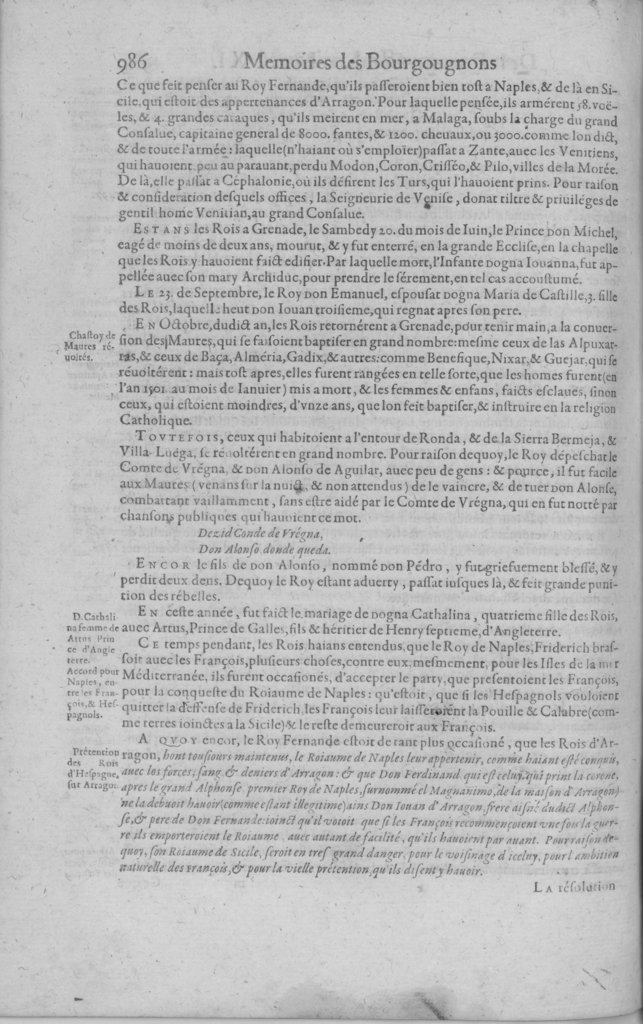 986 Memoires des Bourgougnons
Ce que feit penser au Roy Fernande, qu'ils passeroient bien tost a Naples, & de là en Si-
cile, qui estoit des appertenances d'Arragon. Pour laquelle pensée, ils armérent 58. voë-
les, & 4. grandes caraques, qu'ils meirent en mer, a Malaga, soubs la charge du grand
Consalue, capitaine general de 8000. fantes, & 1200. cheuaux, ou 3000. comme lon dict,
& de toute l'armée: laquelle (n'haiant où s'emploïer) passat a Zante, auec les Venitiens,
qui hauoient peu au parauant, perdu Modon, Coron, Crisséo, & Pilo, villes de la Morée.
De là, elle passat a Cephalonie, où ils défirent les Turs, qui l'hauoient prins. Pour raison
& consideration desquels offices, la Seigneurie de Venise, donat tiltre & priuiléges de
gentil home Venitian, au grand Consalue.
ESTANS les Rois a Grenade, le Sambedy 20. du mois de Iuin, le Prince Don Michel,
eagé de moins de deux ans, mourut, & y fut enterré, en la grande Ecclise, en la chapelle
que les Rois y hauoient faict edifier. Par laquelle mort, l'Infante Dogna Iouanna, fut ap-
pellée auec son mary Archiduc, pour prendre le sérement, en tel cas accoustumé.
LE 23. de Septembre, le Roy Don Emanuel, espousat Dogna Maria de Castille, 3. fille
des Rois, laquelle heut Don Iouan troisieme, qui regnat apres son pere.
EN Octobre, dudict an, les Rois retornérent a Grenade, pour tenir main, a la conuer-
Chastoy de
Maures ré-
uoltés.
sion des Maures, qui se faisoient baptiser en grand nombre: mesme ceux de las Alpuxar-
ras, & ceux de Baça, Alméria, Gadix, & autres: comme Benefique, Nixar, & Guejar, qui se
réuoltérent: mais tost apres, elles furent rangées en telle sorte, que les homes furent (en
l'an 1501. au mois de Ianuier) mis a mort, & les femmes & enfans, faicts esclaues, sinon
ceux, qui estoient moindres, d'vnze ans, que lon feit baptiser, & instruire en la religion
Catholique.
TOVTEFOIS, ceux qui habitoient a l'entour de Ronda, & de la Sierra Bermeja, &
Villa Luéga, se réuoltérent en grand nombre. Pour raison dequoy, le Roy dépeschat le
Comte de Vrégna, & Don Alonso de Aguilar, auec peu de gens: & pource, il fut facile
aux Maures (venans sur la nuict, & non attendus) de le vaincre, & de tuer Don Alonse,
combattant vaillamment, sans estre aidé par le Comte de Vrégna, qui en fut notté par
chansons publiques qui hauoient ce mot.
Dezid Conde de Vrégna,
Don Alonso donde queda.
ENCOR le fils de don Alonso, nommé Don Pédro, y fut griefuement blessé, & y
perdit deux dens. Dequoy le Roy estant aduerty, passat iusques là, & feit grande puni-
tion des rébelles.
D. Cathali
na femme de
Artus Prin
ce d'Angle
terre.
EN ceste année, fut faict le mariage de Dogna Cathalina, quatrieme fille des Rois,
auec Artus, Prince de Galles, fils & héritier de Henry septieme, d'Angleterre.
CE temps pendant, les Rois haians entendus, que le Roy de Naples, Friderich bras-
soit auec les François, plusieurs choses, contre eux, mesmement, pour les Isles de la mer
Accord pour
Naples, en-
tre les Fran-
çois, & Hes-
pagnols.
Méditerranée, ils furent occasionés, d'accepter le party, que presentoient les François,
pour la conqueste du Roiaume de Naples: qu'estoit, que si les Hespagnols vouloient
quitter la deffense de Friderich, les François leur laisseroient la Pouille & Calabre (com-
me terres ioinctes a la Sicile) & le reste demeureroit aux François.
A QVOY encor, le Roy Fernande estoit de tant plus occasioné, que les Rois d'Ar-
Prétention
des Rois
d'Hespagne,
sur Arragon
ragon, hont tousiours maintenus, le Roiaume de Naples leur appertenir, comme haiant esté conquis,
auec les forces, sang & deniers d'Arragon: & que Don Ferdinand, qui est celuy, qui print la corone,
apres le grand Alphonse premier Roy de Naples, surnommé el Magnanimo, de la maison d'Arragon)
ne la debuoit hauoir (comme estant illegitime) ains Don Iouan d'Arragon, frere aisné dudict Alphon-
se, & pere de Don Fernande: ioinct qu'il voioit que si les François recommençoient vne fois la guer-
re ils emporteroient le Roiaume auec autant de facilité, qu'ils hauoient par auant. Pour raison de-
quoy, son Roiaume de Sicile, seroit en tres grand danger, pour le voisinage d'iceluy, pour l'ambition
naturelle des François, & pour la vielle prétention, qu'ils disent y hauoir.
LA résolution